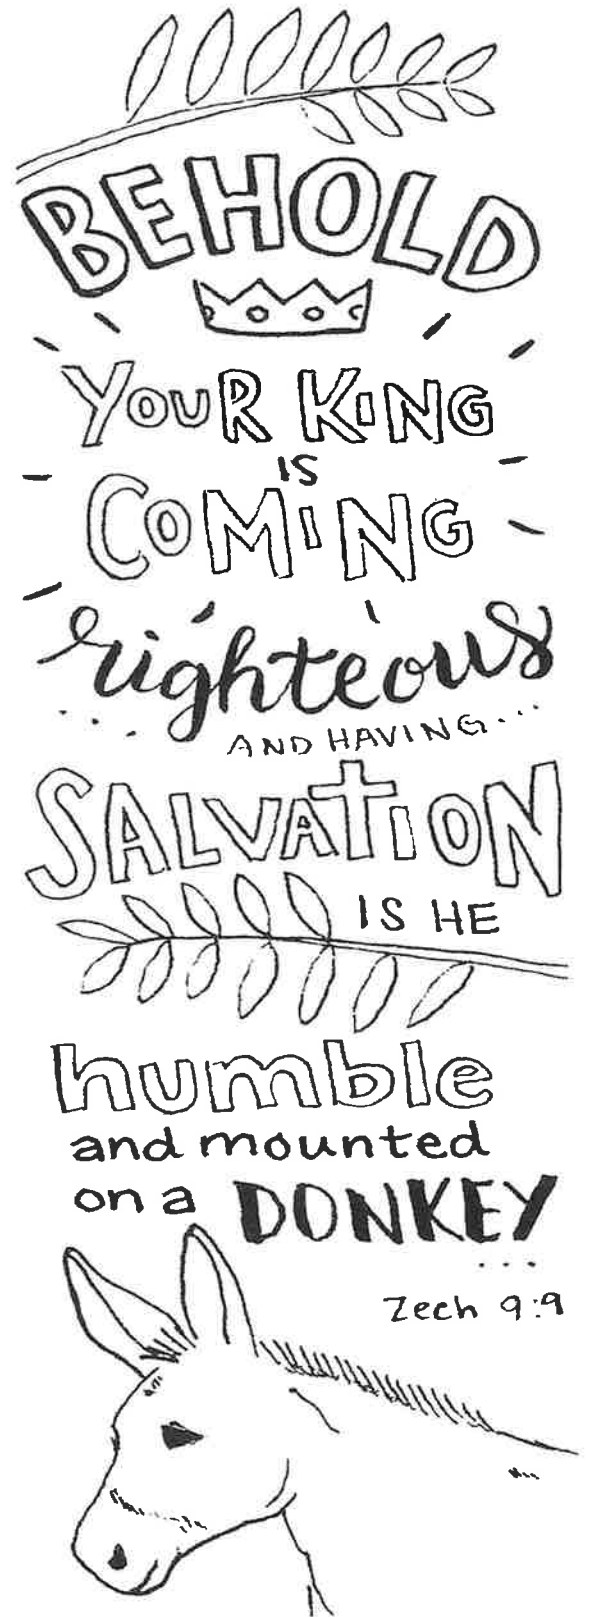 BEHOLD
YOUR KING
IS
COMING
righteous
AND HAVING...
SALVATION
IS HE
humble
and mounted
on a DONKEY
...
Zech 9:9